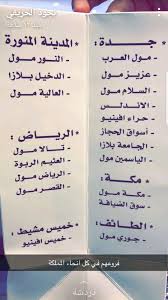 * جـدة :
- مول العرب
- عزيز مول
- السلام مول
- الاندلس
- حراء افينيو
- أسواق الحجاز
- الجامعة بلازا
- الياسمين مول
* مكة :
- مكة مول
- سوق الضيافة
* الطائف :
- جوري مول
* المدينة المنورة
- النور مول
- الدخيل بلازا
- العالية مول
* الرياض :
- تالا مول
- العثيم الربوة
- القصر مول
* خميس مشيط :
- خميس افينيو
فروعهم في كل أنحاء المملكة